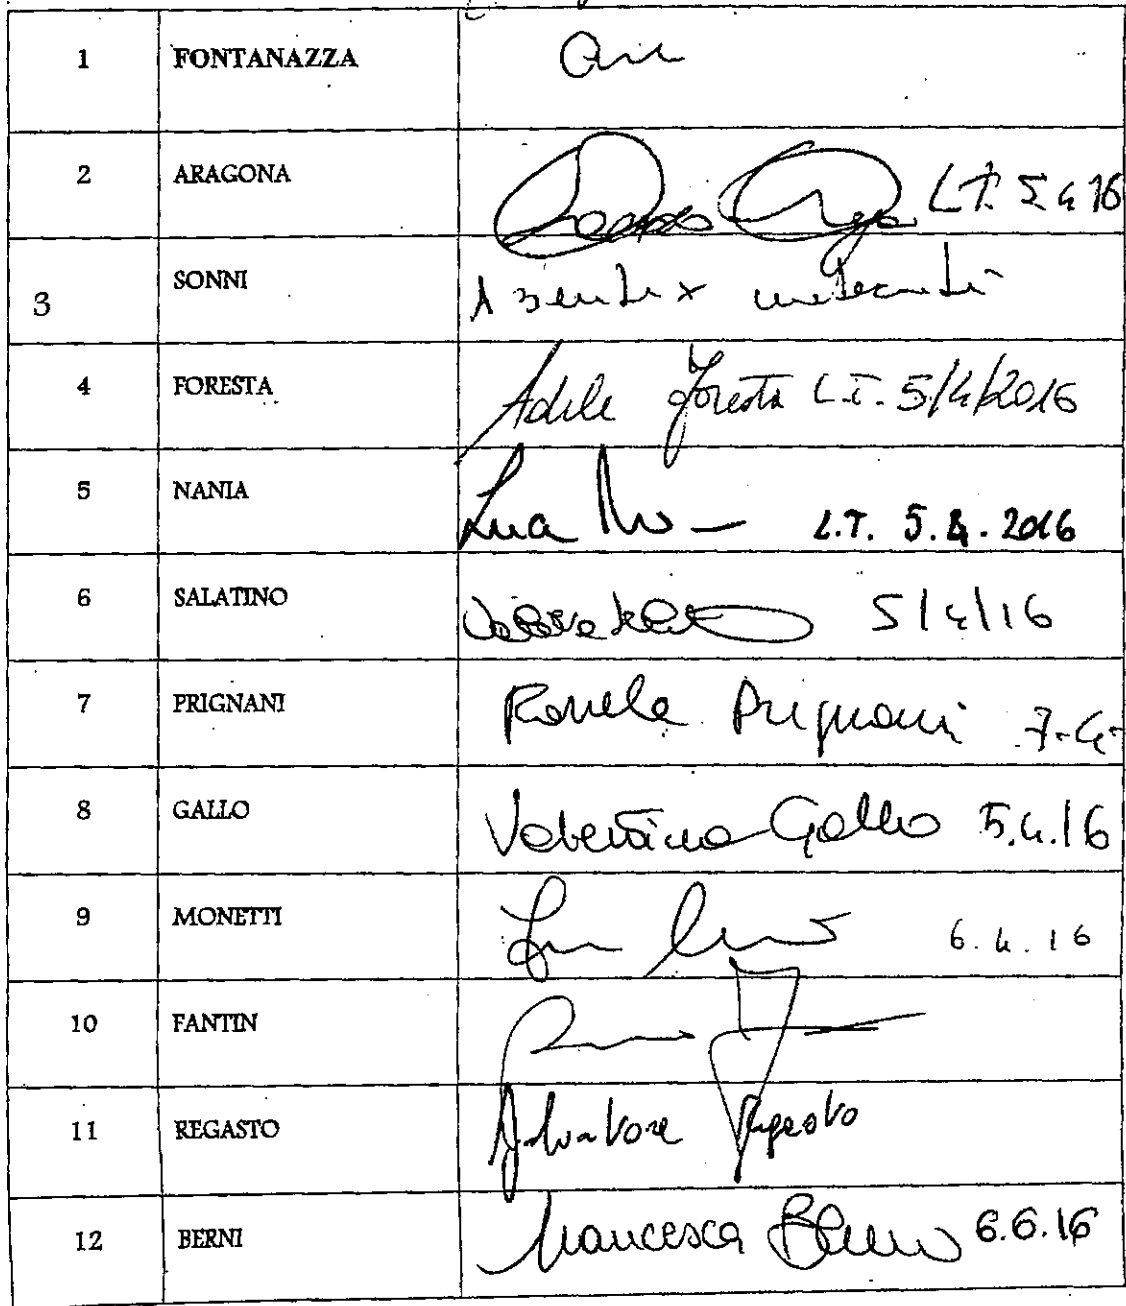 1 FONTANAZZA
2 ARAGONA L.T. 5 4 16
3 SONNI
4 FORESTA Adele Foresta L.T. 5/4/2016
5 NANIA Luca L.T. 5.4.2016
6 SALATINO 5/4/16
7 PRIGNANI Prignani 7-4-
8 GALLO Valentina Gallo 5.4.16
9 MONETTI 6.4.16
10 FANTIN
11 REGASTO Salvatore Regasto
12 BERNI Francesca Berni 6.6.16